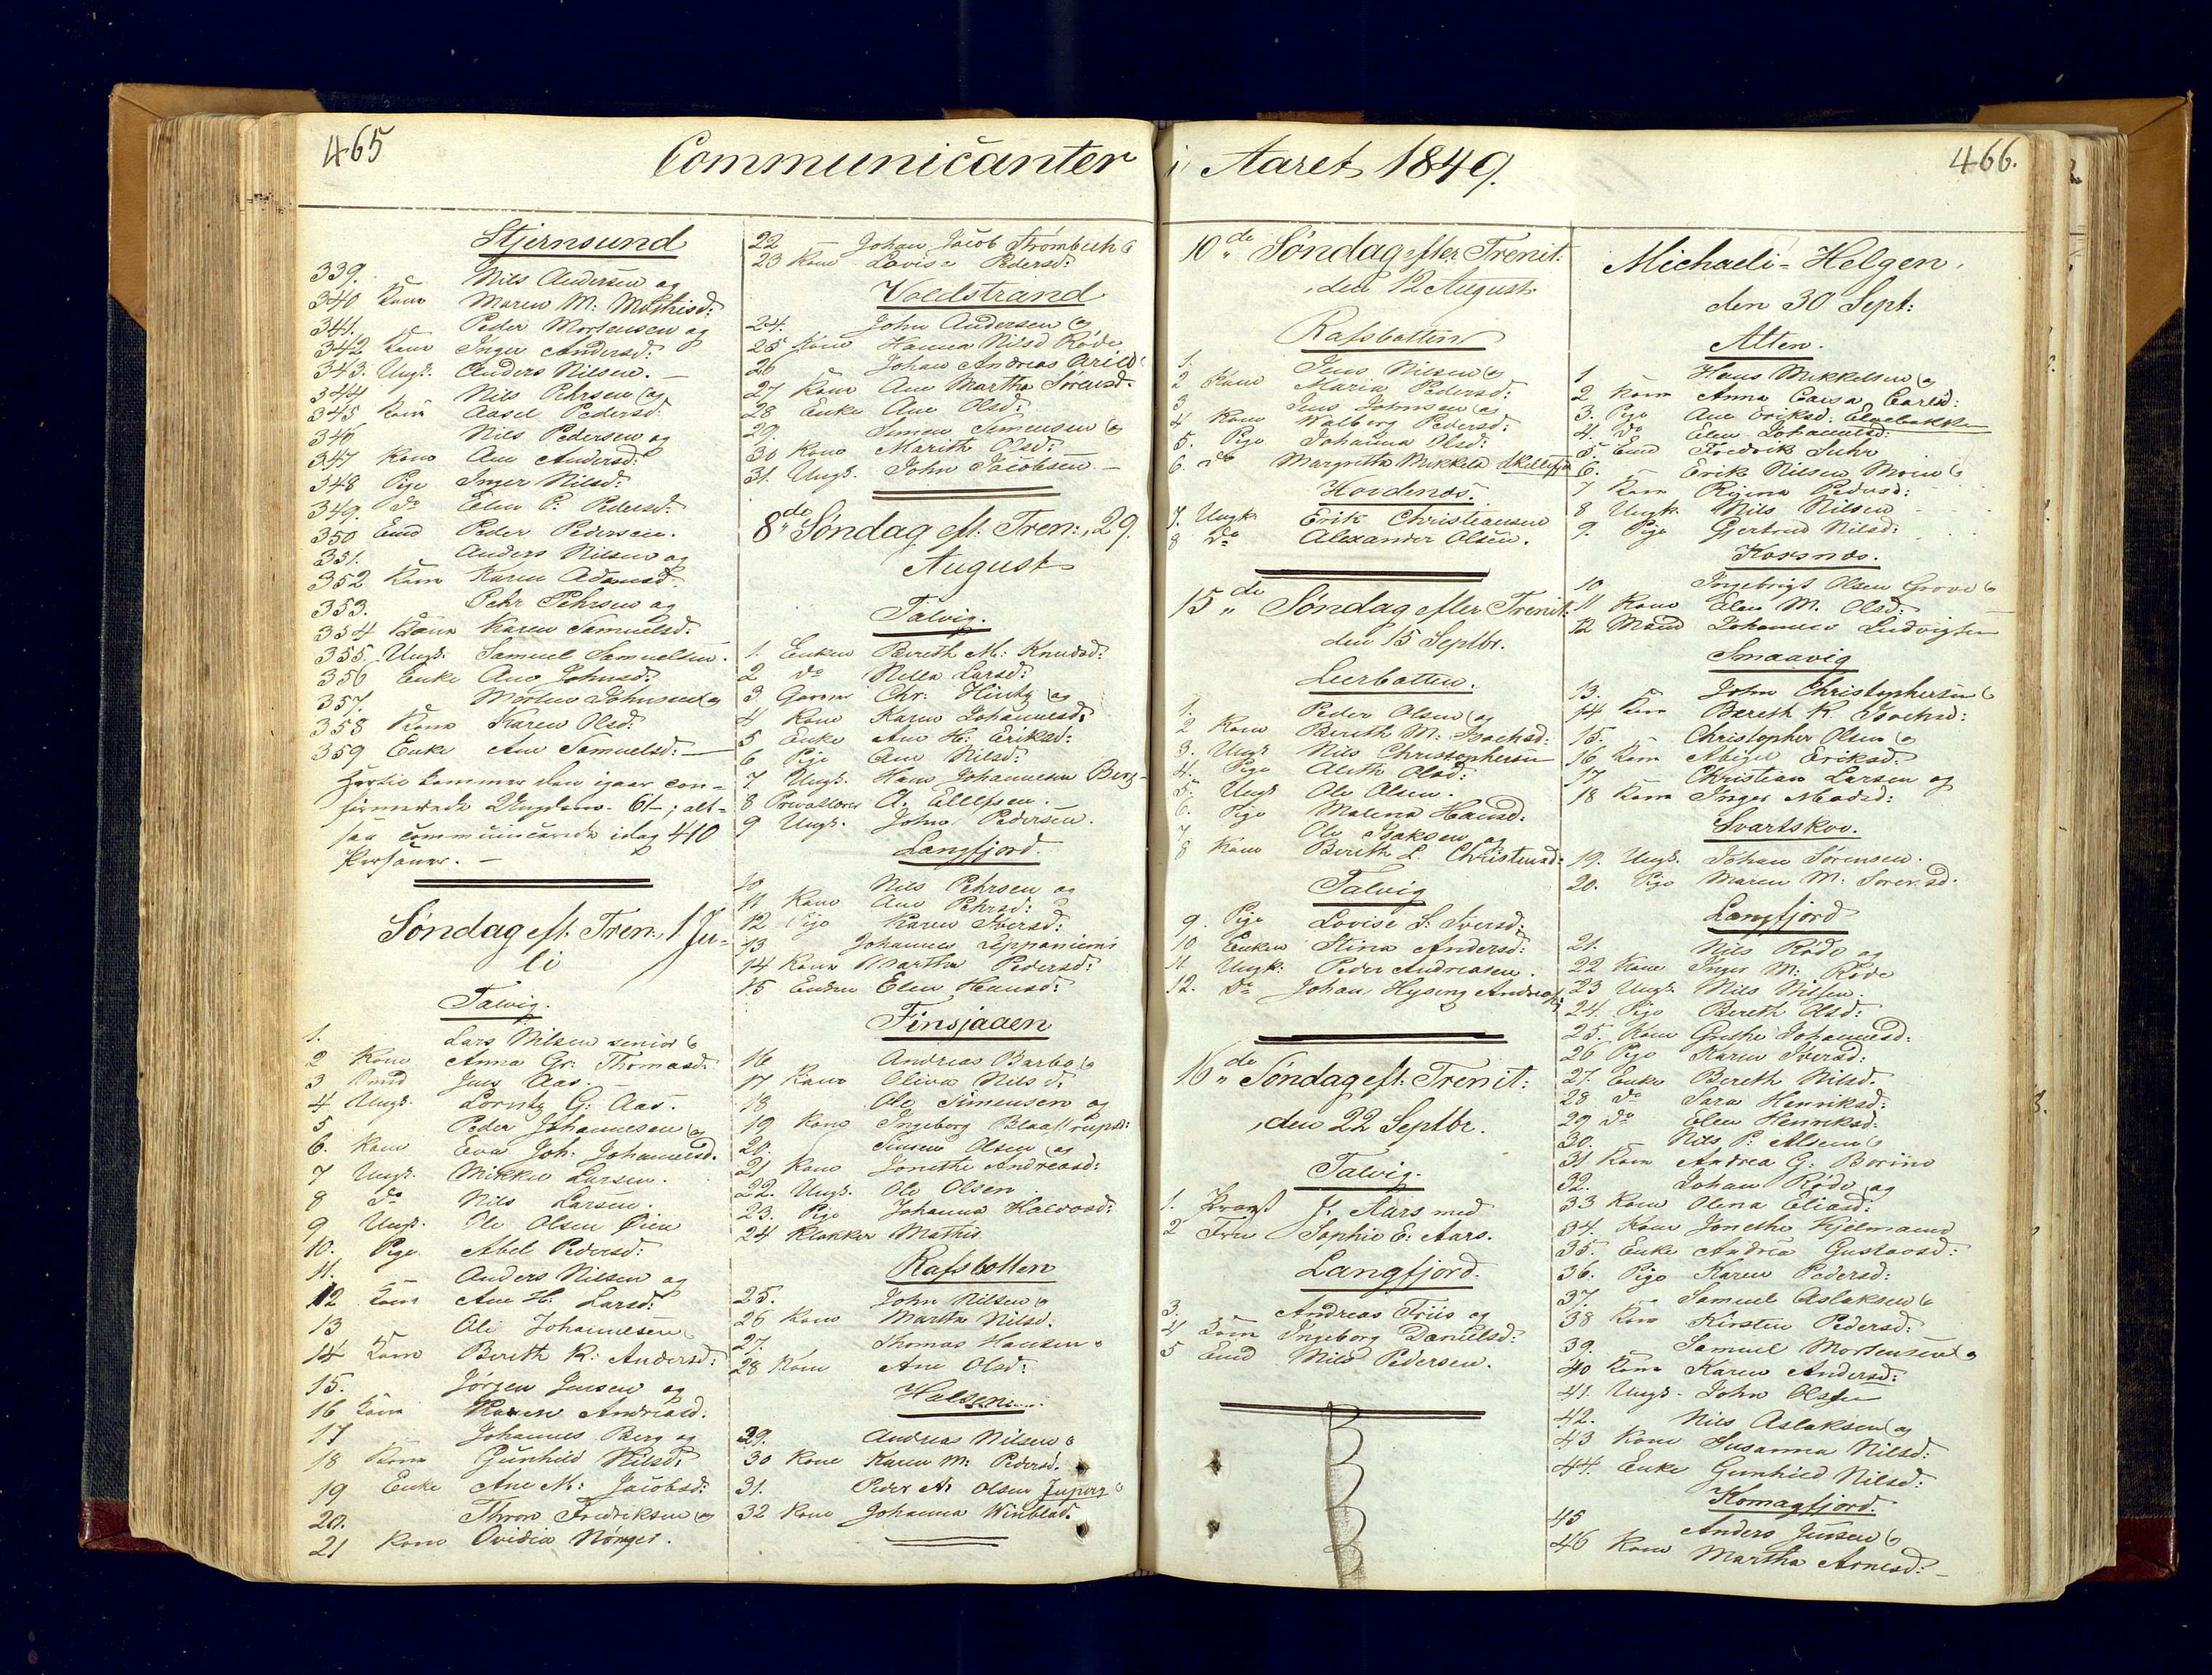 465
Communicanter
Stjernsund
339. Nils Andersen og
340 Kone Maren M: Mathisd:
341. Peder Mortensen og
342 Kone Inger Andersd:
343. Ungk. Anders Nilsen. —
344 Nils Pehrsen og
345 Kone Aasel Pedersd:
346 Nils Pedersen og
347 Kone Ane Andersd:
348 Pige Inger Nilsd:
349. do Elen P. Pedersd:
350 Emd Peder Pedersen.
351. Anders Nilsen og
352 Kone Karen Adamsd.
353. Pehr Pehrsen og
354 Kone Karen Samuelsd:
355 Ungk. Samuel Samuelsen.
356 Enke Ane Johnsd:
357. Morten Johnsen og
358 Kone Karen Olsd:
359 Enke Ane Samuelsd: —
Hertil kommer den igaar con-
firmerede Ungdom. 61-; alt-
saa communicerede idag 410
Personer. —
Søndag eft. Tren. 1 Ju-
li
Talvig.
1. Lars Nilsen senior &
2 Kone Anna Gr: Thomasd:
3 Emd Jens Aas.
4 Ungk. Lorntz G: Aas.
5 Peder Johannesen og
6. Kone Eva Joh: Johannesd.
7 Ungk. Mikkel Larsen.
8 do Nils Larsen.
9 Ungk. Ole Olsen Øien
10. Pige Abel Pedersd:
11. Anders Nilsen og
12 Kone Ane H: Larsd:
13 Ole Johannesen &
14 Kone Berith K: Andersd:
15. Jørgen Jensen og
16 Kone Karen Andreasd.
17 Johannes Berg og
18 Kone Gunhild Nilsd:
19 Enke Ane M: Jacobsd:
20. Thron Fredriksen og
21 Kone Ovidia Nønger.
22 Johan Jacob Strømbeck &
23 Kone Lovise Pedersd:
Voldstrand
24. John Andersen &
25 Kone Hanna Nilsd Røde
26 Johan Andreas Arild &
27 Kone Ane Martha Sørensd.
28 Enke Ane Olsd:
29. Simon Simensen og
30 Kone Marith Olsd:
31. Ungk. John Jacobsen —
8de Søndag eft. Tren:, 29.
August
Talvig.
1. Enken Berith M: Knudsd:
2 do Nilla Larsd:
3 Chr: Hintz og
4 Kone Karen Johannesd:
5 Enke Ane H: Eriksd:
6 Pige Ane Nilsd:
7 Ungk. Hans Johannesen Berg
8 A. Ellefsen.
9 Ungk. John Pedersen.
Langfjord.
10 Nils Pehrsen og
11 Kone Ane Pehrsd:
12 Pige Karen Iversd:
13 Johannes Leppaniemi
14 Kone Martha Pedersd:
15 Enken Elen Hansd:
Finsjaaen
16 Andreas Barbo &
17 Kone Oliva Nilsd.
18 Ole Simensen og
19 Kone Ingeborg Blaastrupsd:
20. Simon Olsen og
21 Kone Jonethe Andreasd:
22. Ungk. Ole Olsen
23. Pige Johanna Halvorsd:
24 Klokker Mathis
Rafsbotten
25. John Nilsen &
26 Kone Martha Nilsd.
27. Thomas Hansen &
28 Kone Ane Olsd:
Halsen
29. Andreas Nilsen &
30 Kone Karen M: Pedersd.
31. Peder A: Olsen &
32 Kone Johanna Winblad.
i Aaret 1849.
466.
10de Søndag efter Trenit.
den 12 August.
Rafsbotten
1. Jens Nilsen og
2 Kone Maria Pedersd:
3 Jens Johnsen og
4 Kone Walborg Pedersd:
5. Pige Johanna Olsd:
6. do Margretha Mikkels
Hordenæs.
7. Ungk. Erik Christiansen
8 do Alexander Olsen.
15de Søndag efter Trenit:
den 15 Septbr.
Leerbotten.
1. Peder Olsen og
2 Kone Berith M: Isachsd:
3. Ungk. Nils Christophersen
4. Pige Alith Olsd:
5. Ungk Ole Olsen.
6. Pige Malena Hansd:
7 Ole Isaksen og
8 Kone Berith L. Christensd:
Talvig
9. Pige Lovise S. Iversd:
10 Enken Stina Andersd:
11 Ungk: Peder Andreasen.
12. do Johan Hysing Andreas
16de Søndag eft: Trenit:
den 22 Septbr.
Talvig.
1. Provst J. Aars med
2 Frue Sophie E: Aars.
Langfjord.
3. Andreas Friis og
4 Kone Ingeborg Danielsd:
5 Emd Nils Pedersen.
Michaeli-Helgen,
den 30 Sept:
Alten.
1. Hans Mikkelsen og
2 Kone Anna Caisa Carlsd:
3. Pige Ane Eriksd: Elvebakken
4. do Elen Johannesd:
5. Emd Fredrik Suhr
6. Erik Nilsen Moen &
7 Kone Regina Pedersd:
8 Ungk. Nils Nilsen
9. Pige Gjertrud Nilsd:
Korsnæs.
10 Ingebrigt Olsen Grove &
11 Kone Elen M. Olsd:
12 Mand Johannes Ludvigsen
Smaavig
13. John Christophersen &
14 Kone Bereth K. Isachsd:
15. Christopher Olsen og
16 Kone Abigel Eriksd:
17 Christian Larsen og
18 Kone Inger Madsd:
Svartskov.
19. Ungk. Johan Sørensen.
20. Pige Maren M: Sørensd.
Langfjord
21. Nils Røde og
22 Kone Inger M: Røde
23 Ungk. Nils Nilsen.
24. Pige Bereth Olsd:
25. Kone Grethe Johannesd:
26 Pige Karen Iversd:
27. Enke Bereth Nilsd.
28 do Sara Henriksd:
29 do Elen Henriksd:
30. Nils P: Olsen &
31 Kone Andrea G: Borino
32. Johan Røde og
33 Kone Olena Eliasd:
34. Kone Jonethe Hjelmsend
35. Enke Andrea Gustavsd:
36. Pige Karen Pedersd:
37. Samuel Aslaksen &
38 Kone Kirsten Pedersd:
39. Samuel Mortensen &
40 Kone Karen Andersd:
41. Ungk. John Olsen
42. Nils Aslaksen og
43 Kone Susanna Nilsd:
44. Enke Gunhild Nilsd:
Komagfjord.
45 Anders Jensen &
46 Kone Martha Arnesd: —